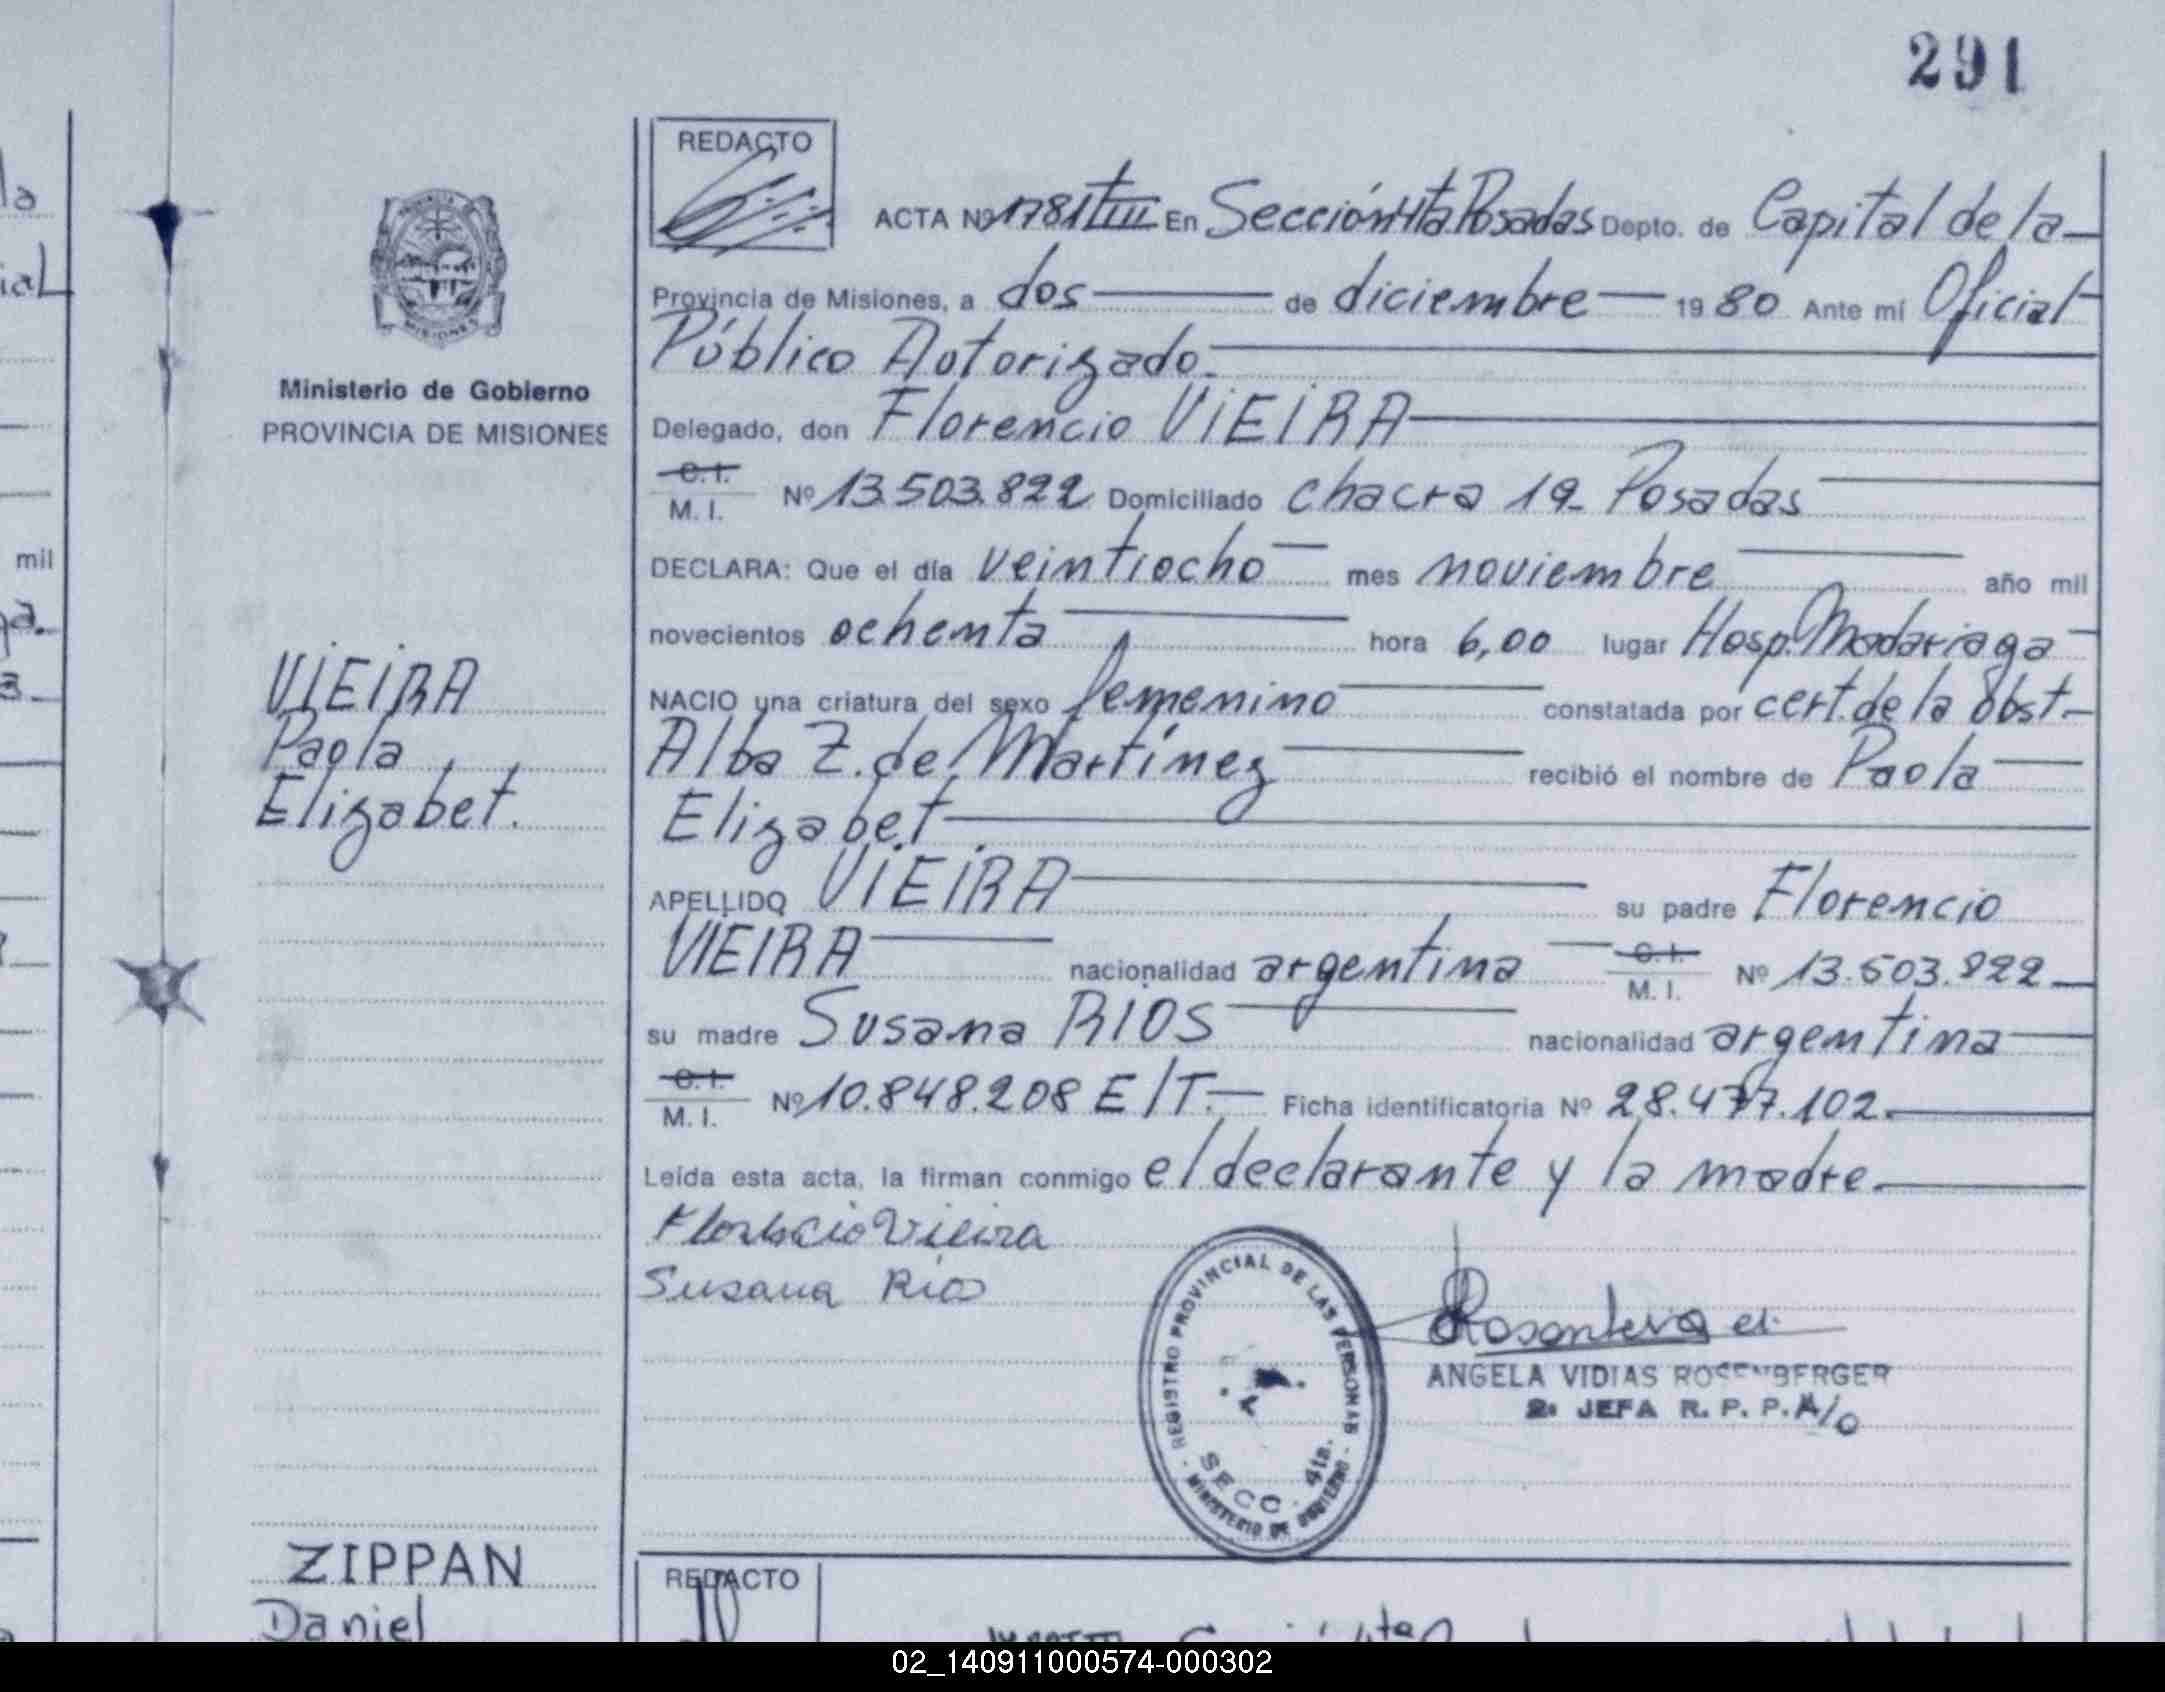 291
REDACTO
ACTA Nº 1781 T III En Sección 4ta Posadas Depto. de Capital de la
Provincia de Misiones, a dos de diciembre 1980 Ante mí Oficial
Público Autorizado.
Delegado, don Florencio VIEIRA
C. I.
M. I. Nº 13.503.822 Domiciliado chacra 19- Posadas
DECLARA: Que el día veintiocho mes noviembre año mil
novecientos ochenta hora 6,00 lugar Hosp. Madariaga
NACIO una criatura del sexo femenino constatada por cert. de la Obst-
Alba Z. de Martínez recibió el nombre de Paola
Elizabet
APELLIDO VIEIRA su padre Florencio
VIEIRA nacionalidad argentina C. I. M. I. Nº 13.503.822
su madre Susana RIOS nacionalidad argentina
C. I.
M. I. Nº 10.848.208 E/T. Ficha identificatoria Nº 28.477.102.
Leída esta acta, la firman conmigo el declarante y la madre.
Florencio Vieira
Susana Rios
REGISTRO PROVINCIAL DE LAS PERSONAS
SECC. 4ta.
MINISTERIO DE GOBIERNO
ANGELA VIDIAS ROSENBERGER
2ª JEFA R. P. P. A/C
Ministerio de Gobierno
PROVINCIA DE MISIONES
VIEIRA
Paola
Elizabet.
ZIPPAN
Daniel
REDACTO
mil
02_140911000574-000302